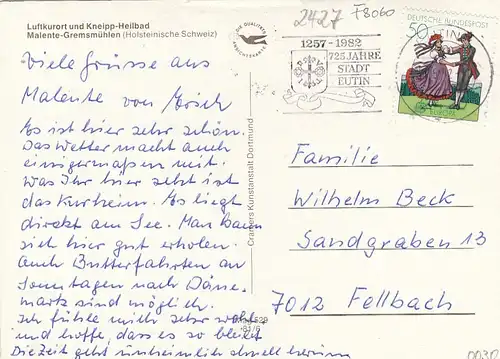 Luftkurort und Kneipp-Heilbad
Malente-Gremsmühlen (Holsteinische Schweiz)
Viele Grüsse aus
Malente von
Es ist hier sehr schön.
Das Wetter macht auch
einigermaßen mit.
Was Ihr hier seht ist
das Kurheim. Es liegt
direkt am See. Man kann
sich hier gut erholen.
Auch Butterfahrten an
Sonntagen nach Däne-
mark sind möglich.
Ich fühle mich sehr wohl
und hoffe, dass es so bleibt
Die Zeit geht unheimlich schnell herum
Cramers Kunstanstalt Dortmund
2427
F8060
1257-1982
725 JAHRE
STADT
EUTIN
DEUTSCHE BUNDESPOST
50
Familie
Wilhelm Beck
Sandgraben 13
7012 Fellbach